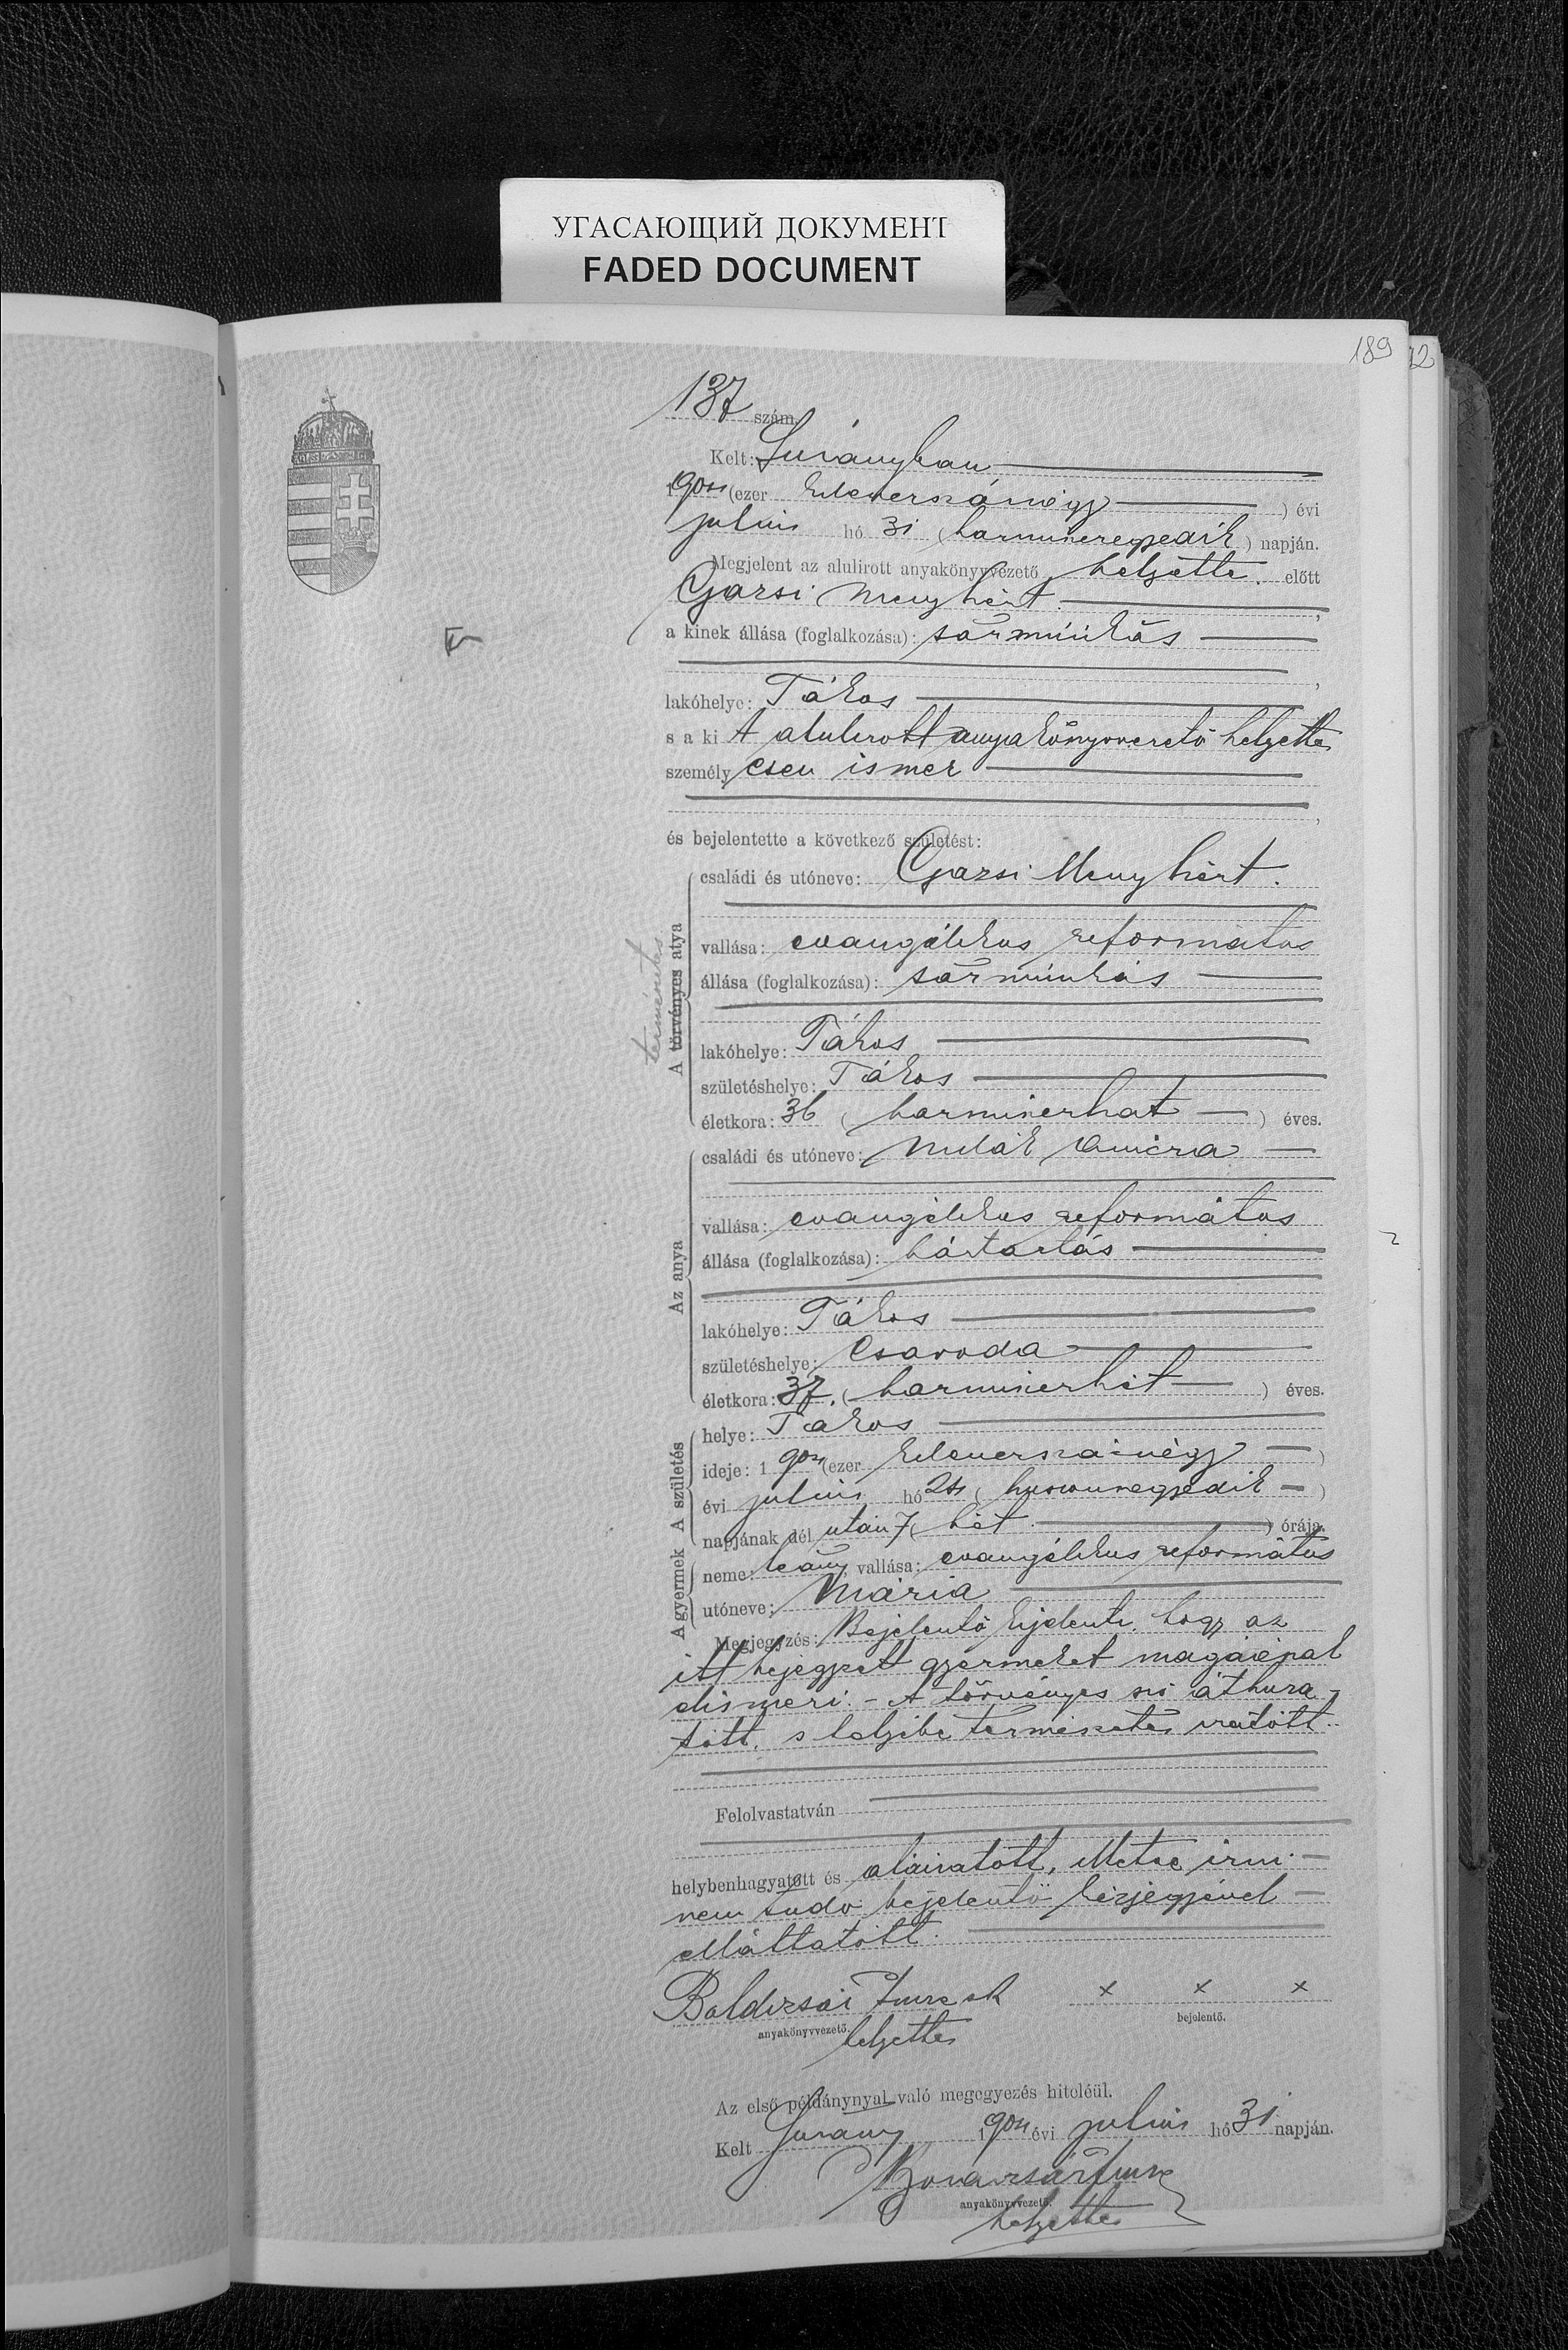 УГАСАЮЩИЙ ДОКУМЕНТ
FADED DOCUMENT
189
12
137 szám.
Kelt: Surányban
1904 (ezer kilencszáznégy) évi
julius hó 31 (harmincegyedik) napján.
Megjelent az alulirott anyakönyvvezető helyettes előtt
Gazsi Menyhért,
a kinek állása (foglalkozása): sármunkás
,
lakóhelye: Tákos
s a ki A alulirott anyakönyvvezető helyettes
személyesen ismer
,
és bejelentette a következő születést:
családi és utóneve: Gazsi Menyhért.
természetes
A törvényes atya
vallása: evangélikus református
állása (foglalkozása): sármunkás
lakóhelye: Tákos
születéshelye: Tákos
életkora: 36 (harminczhat) éves.
Az anya
családi és utóneve:
vallása: evangélikus református
állása (foglalkozása): háztartás
lakóhelye: Tákos
születéshelye: Csaroda
életkora: 37. (harminczhét) éves.
A születés
helye: Tákos
ideje: 1904 (ezer kilencszáznégy)
évi julius hó 24 (huszonnegyedik)
napjának dél után 7 (hét) órája.
A gyermek
neme: leány, vallása: evangélikus református
utóneve: Mária
Megjegyzés: Bejelentő kijelenti, hogy az
itt bejegyzett gyermeket magáénak
elismeri. - A törvényes szó áthuza-
tott, s helyébe természetes iratott.
Felolvastatván
helybenhagyatott és aláiratott, illetve irni
nem tudó bejelentő kézjegyével
elláttatott.
Boldizsár Imre sk x x x
anyakönyvvezető. bejelentő.
helyettes
Az első példánynyal való megegyezés hiteléül.
Kelt Surány 1904 évi julius hó 31 napján.
Boldizsár Imre
anyakönyvvezető.
helyettes